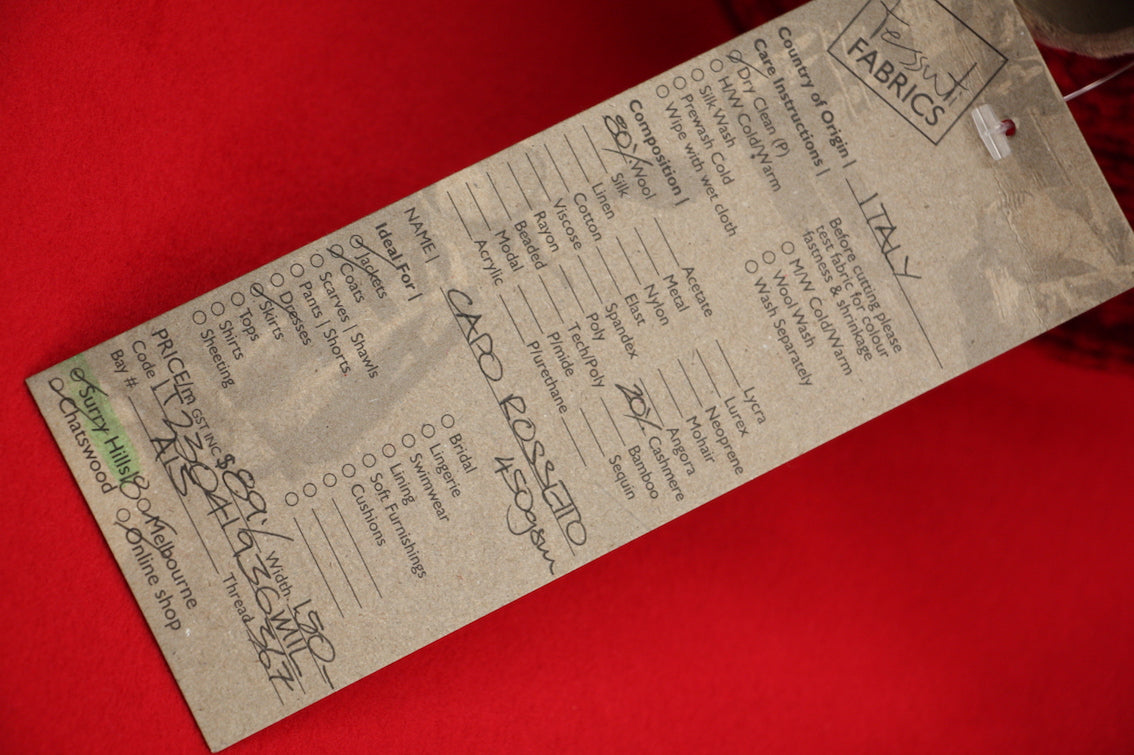 Tessuti
FABRICS
Country of Origin | ITALY
Care Instructions |
Dry Clean (P)
H/W Cold/Warm
Silk Wash
Prewash Cold
Wipe with wet cloth
Before cutting please
test fabric for colour
fastness & shrinkage
M/W Cold/Warm
Wool Wash
Wash Separately
Composition |
80% Wool
Silk
Linen
Cotton
Viscose
Rayon
Beaded
Modal
Acrylic
Acetate
Metal
Nylon
Elast
Spandex
Poly
Tech/Poly
P/mide
P/urethane
Lycra
Lurex
Neoprene
Mohair
Angora
20% Cashmere
Bamboo
Sequin
NAME | CAPO ROSSETTO
450gsm
Ideal For |
Jackets
Coats
Scarves | Shawls
Pants | Shorts
Dresses
Skirts
Tops
Shirts
Sheeting
Bridal
Lingerie
Swimwear
Lining
Soft Furnishings
Cushions
PRICE/m GST INC $ 89./ Width 150-
Code
Bay #. A15 Thread 367
Surry Hills Melbourne
Chatswood Online shop